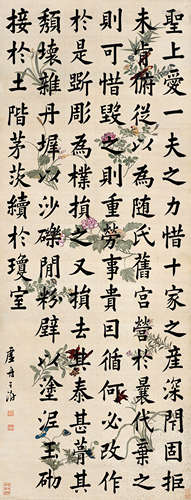 聖上愛一夫之力惜十家之產深閇固拒
未肯俯從以為隨氏舊宮營於曩代棄之
則可惜毀之則重勞事貴因循何必改作
於是斲彫為樸損之又損去其泰甚葺其
頹壞雜丹墀以沙礫間粉壁以塗泥玉砌
接於土階茅茨續於瓊室
虛舟王澍